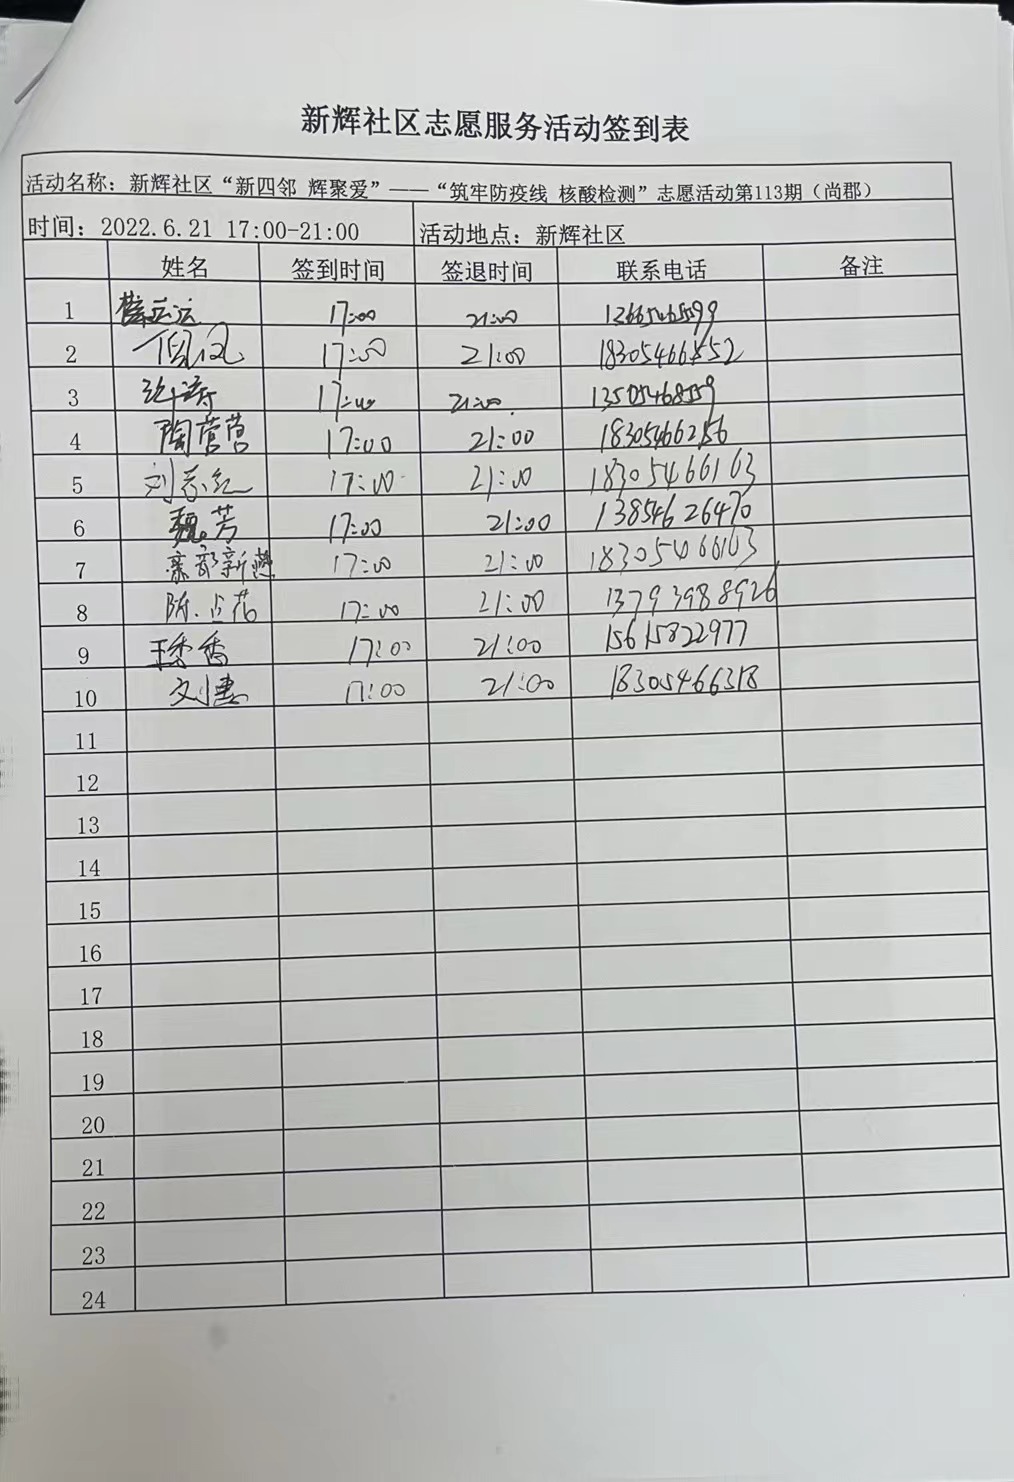 新辉社区志愿服务活动签到表
活动名称：新辉社区“新四邻 辉聚爱”——“筑牢防疫线 核酸检测”志愿活动第113期（尚郡）
时间：2022.6.21 17:00-21:00 活动地点：新辉社区
姓名 签到时间 签退时间 联系电话 备注
1 17:00 21:00
2 17:00 21:00 18305466552
3 17:00 21:00
4 陶营营 17:00 21:00 18305466256
5 17:00 21:00 18305466163
6 魏芳 17:00 21:00 13854626470
7 17:00 21:00 18305466163
8 17:00 21:00 13793988926
9 王秀香 17:00 21:00 15615822977
10 刘惠 17:00 21:00 18305466318
11
12
13
14
15
16
17
18
19
20
21
22
23
24